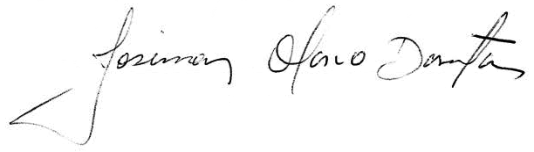 Josimar Olavo Dantas